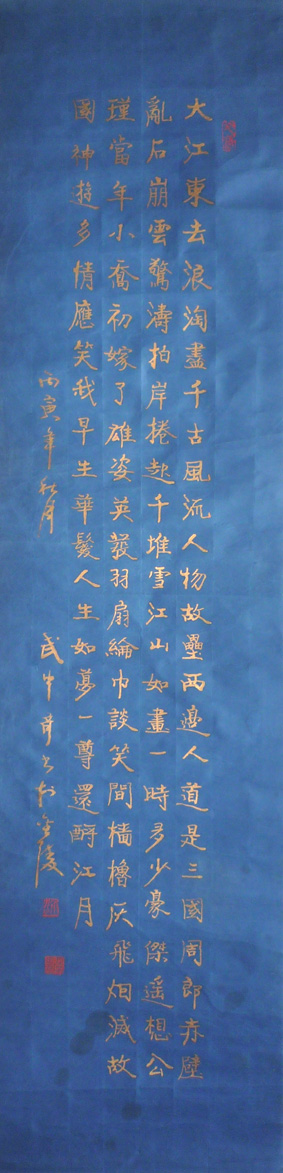 大江東去浪淘盡千古風流人物故壘西邊人道是三國周郎赤壁
亂石崩雲驚濤拍岸捲起千堆雪江山如畫一時多少豪傑遥想公
瑾當年小喬初嫁了雄姿英發羽扇綸巾談笑間檣櫓灰飛烟滅故
國神遊多情應笑我早生華髮人生如夢一尊還酹江月
丙寅年秋月 武中 書於金陵